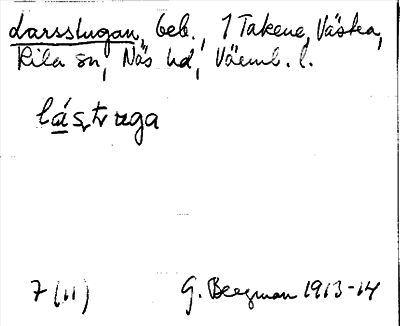 Larsstugan, beb., 1 Takene, Västra,
Kila sn, Näs hd, Värml. l.
lástruga
7 (11) G. Bergman 1913-14